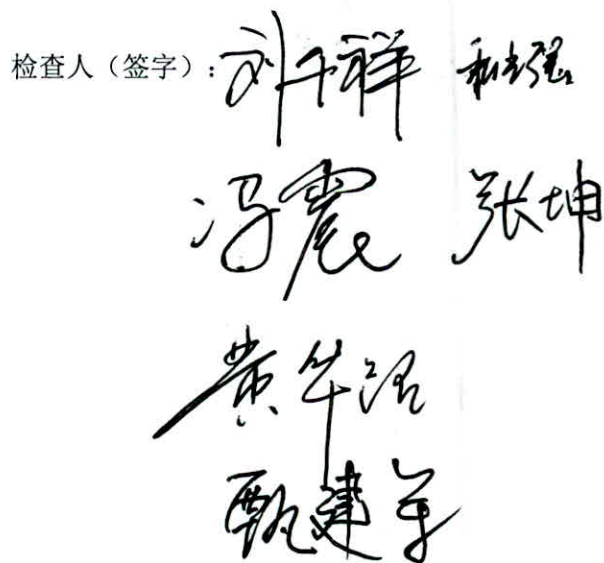 检查人（签字）：刘千祥
冯震 张坤
黄华
甄建军